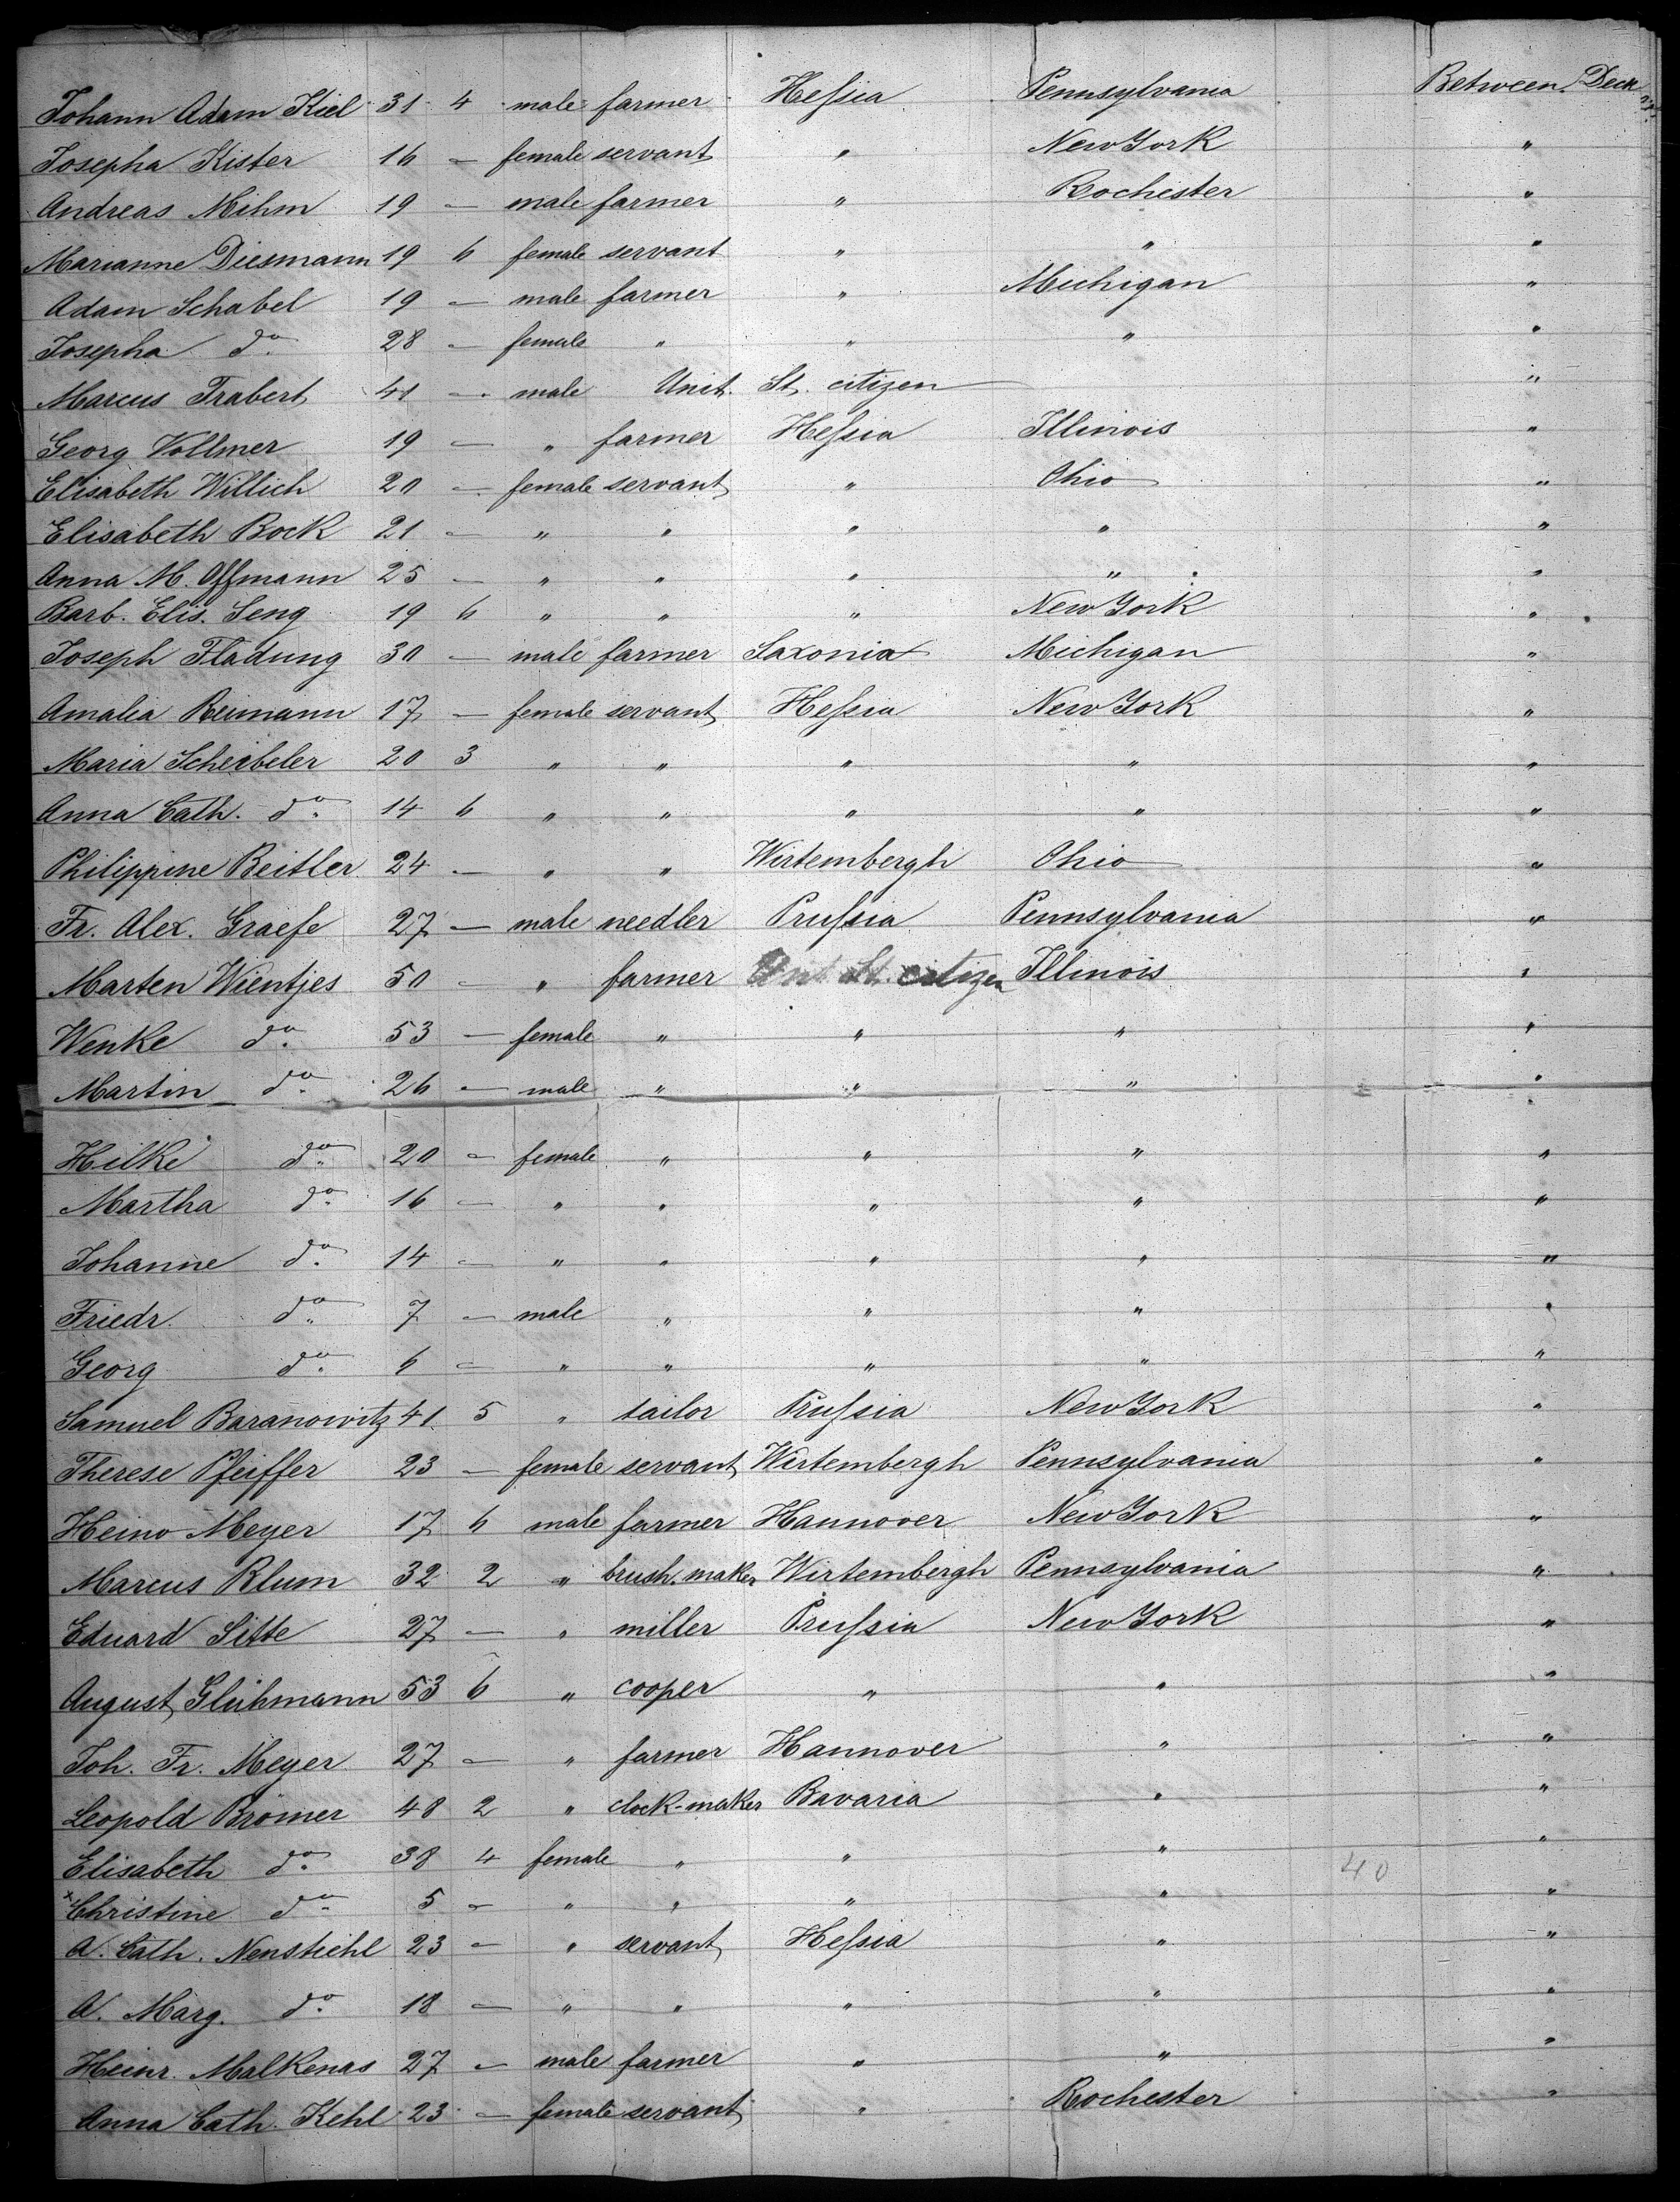 Johann Adam Kiel 31 4 male farmer Hessia Pennsylvania Between Deck
Josepha Kister 16 — female servant " New York "
Andreas Mihm 19 — male farmer " Rochester "
Marianne Diesmann 19 6 female servant " " "
Adam Schabel 19 — male farmer " Michigan "
Josepha do. 28 — female " " " "
Marcus Trabert 41 — male Unit. St. citizen "
Georg Vollmer 19 — " farmer Hessia Illinois "
Elisabeth Willich 20 — female servant " Ohio "
Elisabeth Bock 21 — " " " " "
Anna M. Offmann 25 — " " " " "
Barb. Elis. Seng 19 6 " " " New York "
Joseph Fladung 30 — male farmer Saxonia Michigan "
Amalia Reimann 17 — female servant Hessia New York "
Maria Scheibeler 20 3 " " " " "
Anna Cath. do. 14 6 " " " " "
Philippine Beitler 24 — " " Wirtembergh Ohio "
Fr. Alex. Graefe 27 — male needler Prussia Pennsylvania "
Marten Wientjes 50 — " farmer Unit. St. citizen Illinois "
Wenke do. 53 — female " " " "
Martin do. 26 — male " " " "
Hilke do. 20 — female " " " "
Martha do. 16 — " " " " "
Johanne do. 14 — " " " " "
Friedr. do. 7 — male " " " "
Georg do. 6 — " " " " "
Samuel Baranowitz 41 5 " tailor Prussia New York "
Therese Pfeiffer 23 — female servant Wirtembergh Pennsylvania "
Heino Meyer 17 6 male farmer Hannover New York "
Marcus Blum 32 2 " brush-maker Wirtembergh Pennsylvania "
Eduard Sitte 27 — " miller Prussia New York "
August Glühmann 53 6 " cooper " " "
Joh. Fr. Meyer 27 — " farmer Hannover " "
Leopold Brömer 48 2 " clock-maker Bavaria " "
Elisabeth do. 38 4 female " " " 40 "
x Christine do. 5 — " " " " "
A. Cath. Nenstiehl 23 — " servant Hessia " "
A. Marg. do. 18 — " " " " "
Heinr. Malkenas 27 — male farmer " " "
Anna Cath. Kehl 23 — female servant " Rochester "